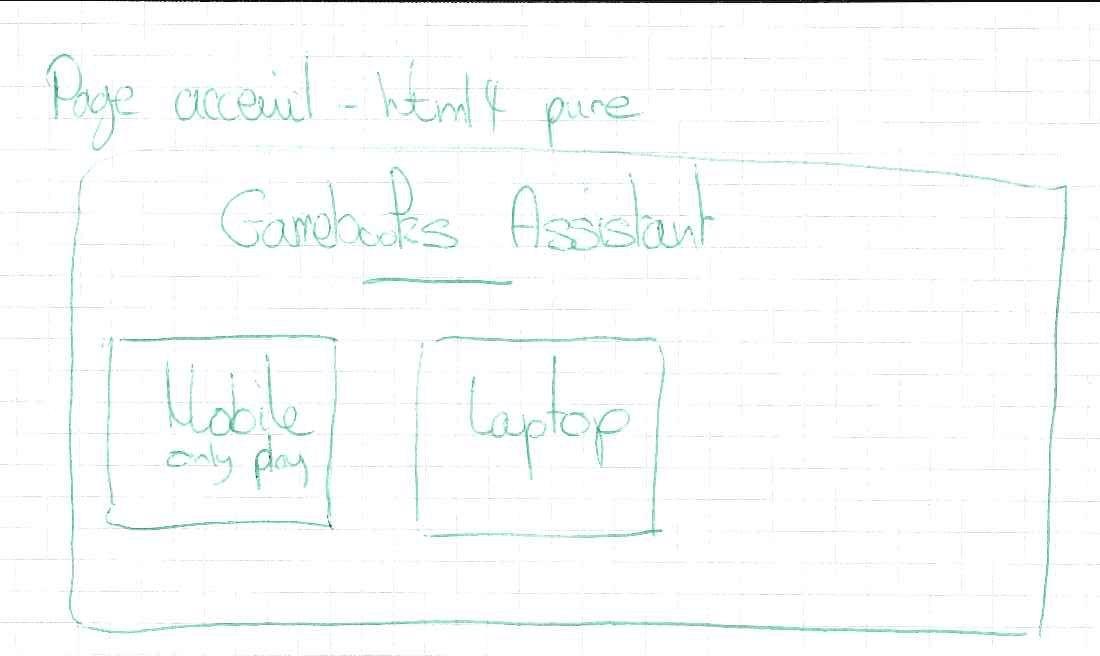 Page acceuil - html4 pure
Gamebooks Assistant
Mobile
only play
Laptop